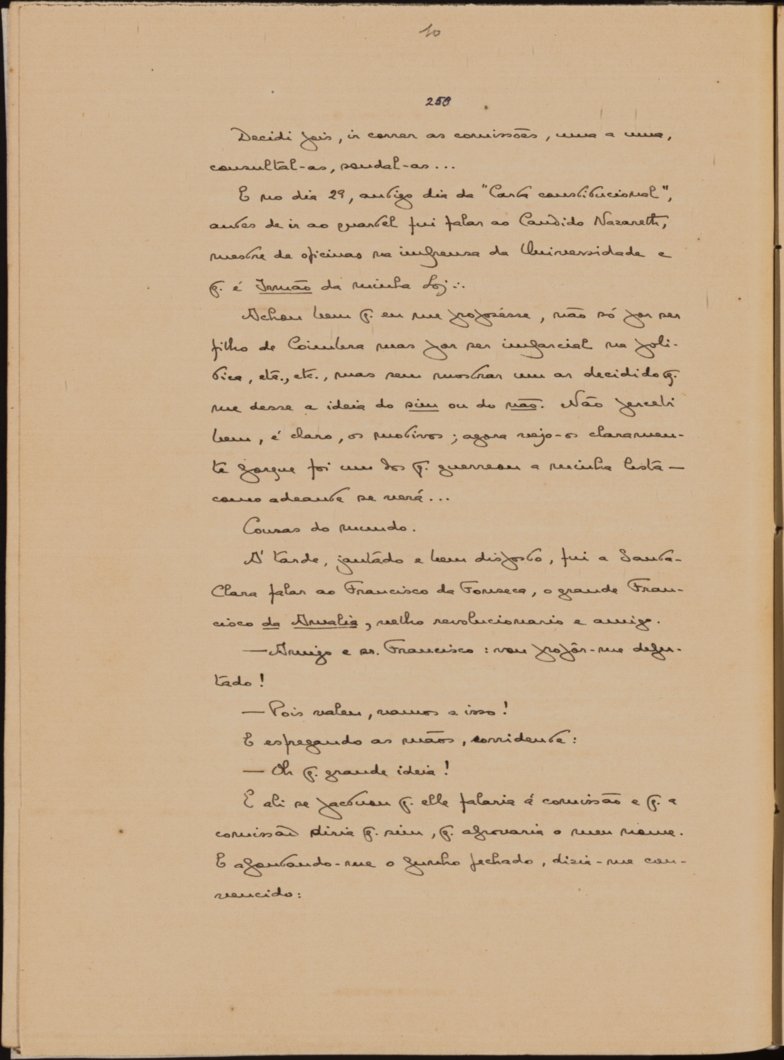 10
250
Decidi pois, ir correr as comissões, uma a uma,
consultal-as, sondal-as...
E no dia 29, antigo dia da "Carta constitucional",
antes de ir ao quartel fui falar ao Candido Nazareth,
mestre de oficinas na imprensa da Universidade e
q. é Irmão da minha Loj∴
Achou bem q. eu me propozésse, não só por ser
filho de Coimbra mas por ser imparcial na poli-
tica, etc., etc., mas sem mostrar um ar decidido q.
me desse a ideia do sim ou do não. Não percebi
bem, é claro, os motivos; agora vejo-os claramen-
te porque foi um dos q. guerreou a minha lista—
como adeante se verá...
Cousas do mundo.
Á tarde, jantádo e bem disposto, fui a Santa-
Clara falar ao Francisco da Fonseca, o grande Fran-
cisco da Amalia, velho revolucionario e amigo.
—Amigo e sr. Francisco: vou propôr-me depu-
tado!
— Pois valeu, vamos a isso!
E esfregando as mãos, sorridente:
— Oh q. grande ideia!
E ali se pactuou q. elle falaria á comissão e q. a
comissão diria q. sim, q. aprovaria o meu nome.
E apontando-me o punho fechado, dizia-me con-
vencido: